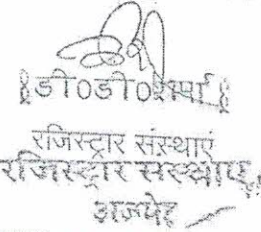 (डी०डी०शर्मा)
रजिस्ट्रार संस्थाएं
रजिस्ट्रार संस्थाएं,
अजमेर